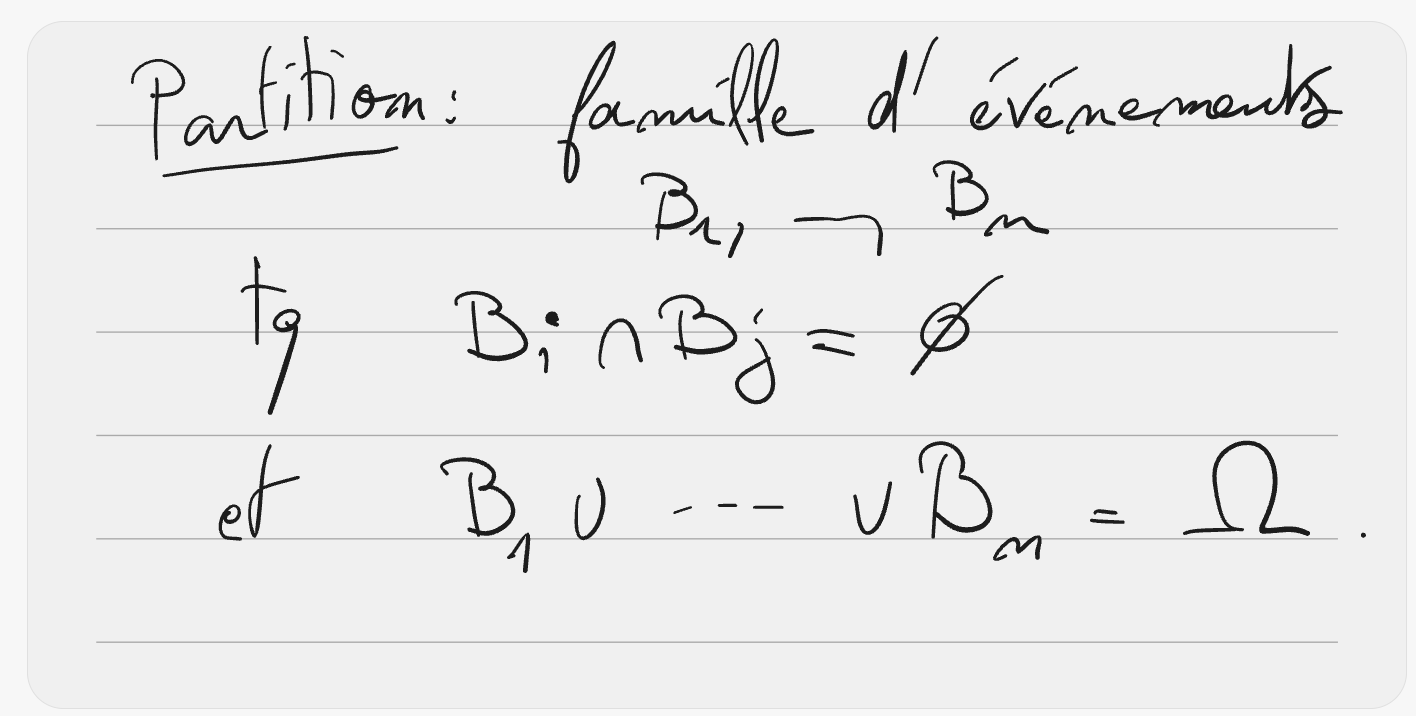 Partition : famille d'événements
B₁, — , Bₙ
tq Bᵢ ∩ Bⱼ = ∅
et B₁ ∪ ---- ∪ Bₙ = Ω .